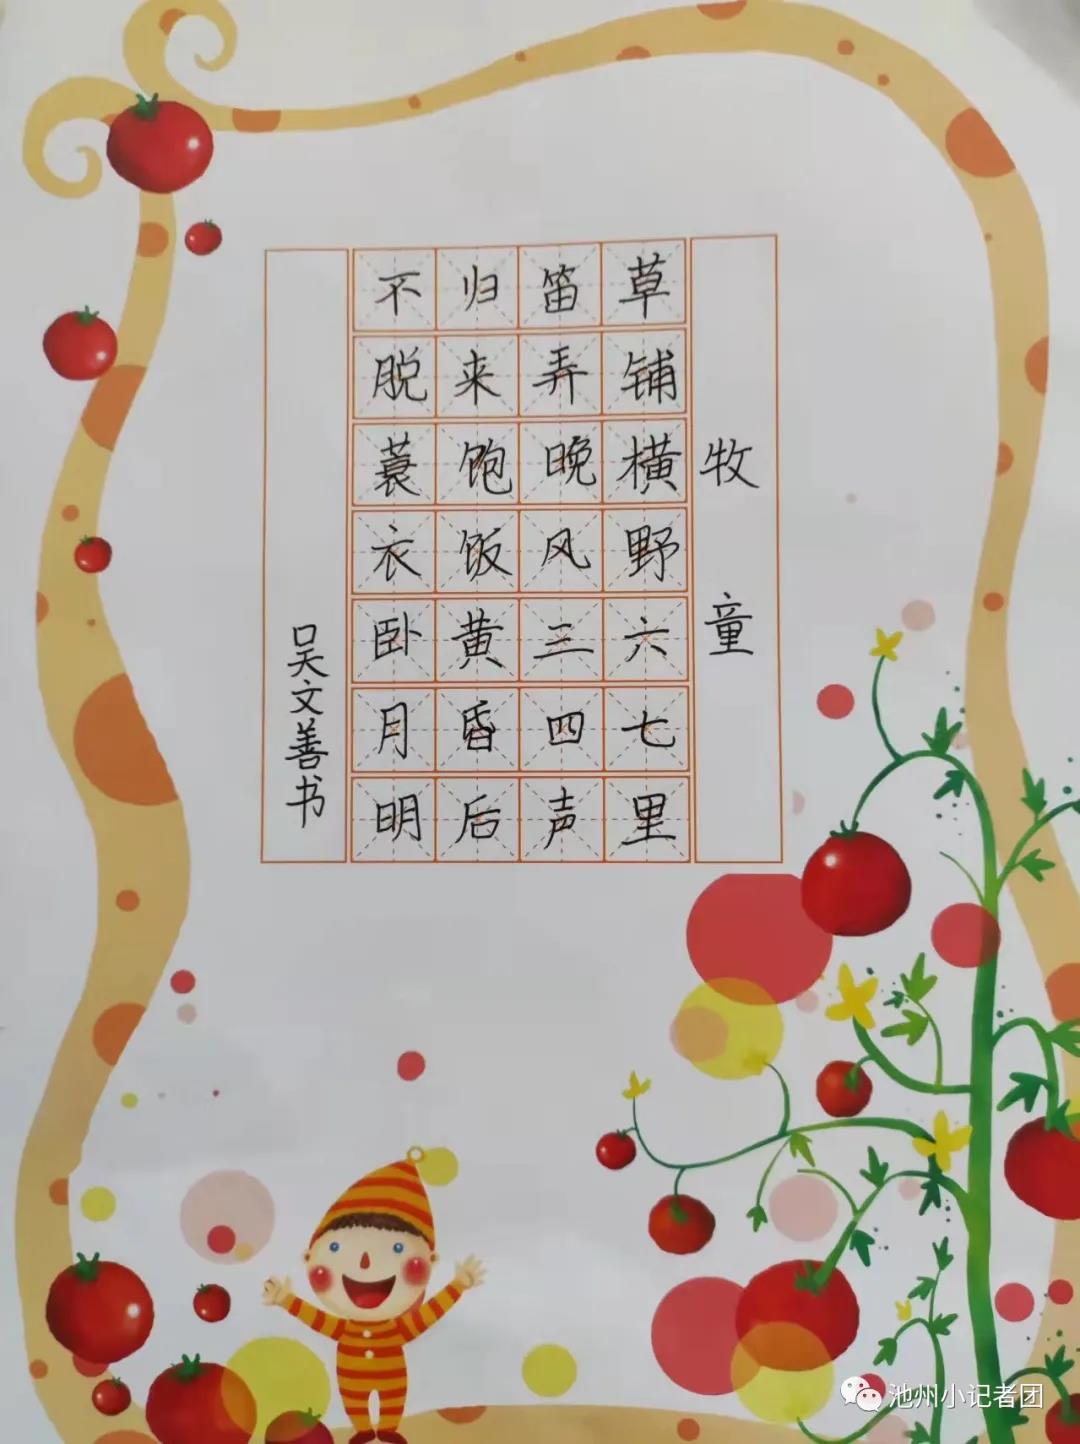 牧童
草铺横野六七里
笛弄晚风三四声
归来饱饭黄昏后
不脱蓑衣卧月明
吴文善书
池州小记者团